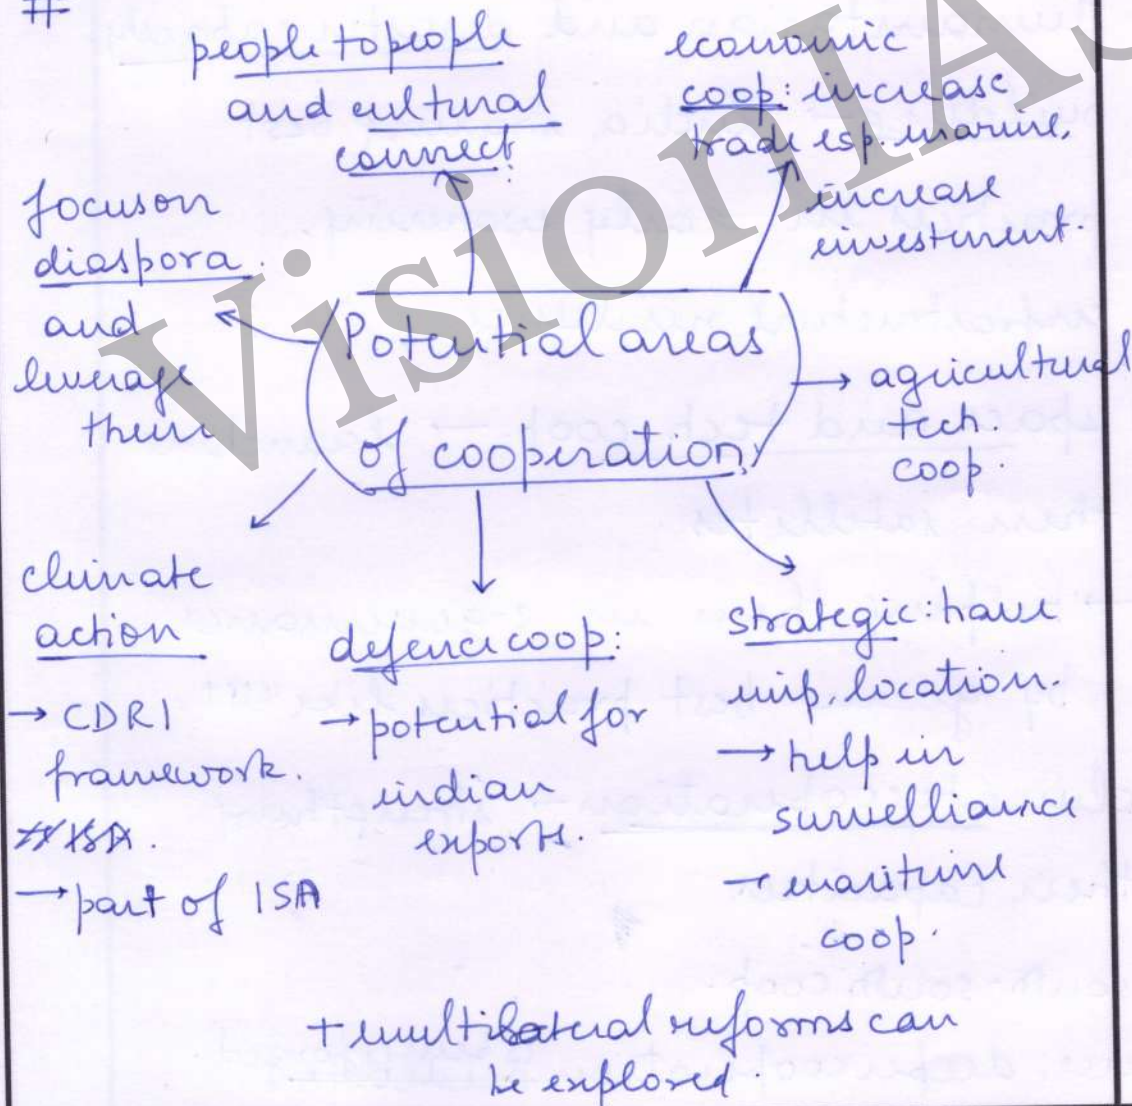 #
people to people
and cultural
connect
economic
coop: increase
trade esp. marine.
increase
investment.
focus on
diaspora.
and
leverage
them
Potential areas
of cooperation
→ agricultural
tech
coop.
climate
action
→ CDRI
framework.
→ part of ISA
defence coop:
→ potential for
indian
exports.
strategic: have
imp. location.
→ help in
survelliance
→ maritime
coop.
+ multilateral reforms can
be explored
VisionIAS